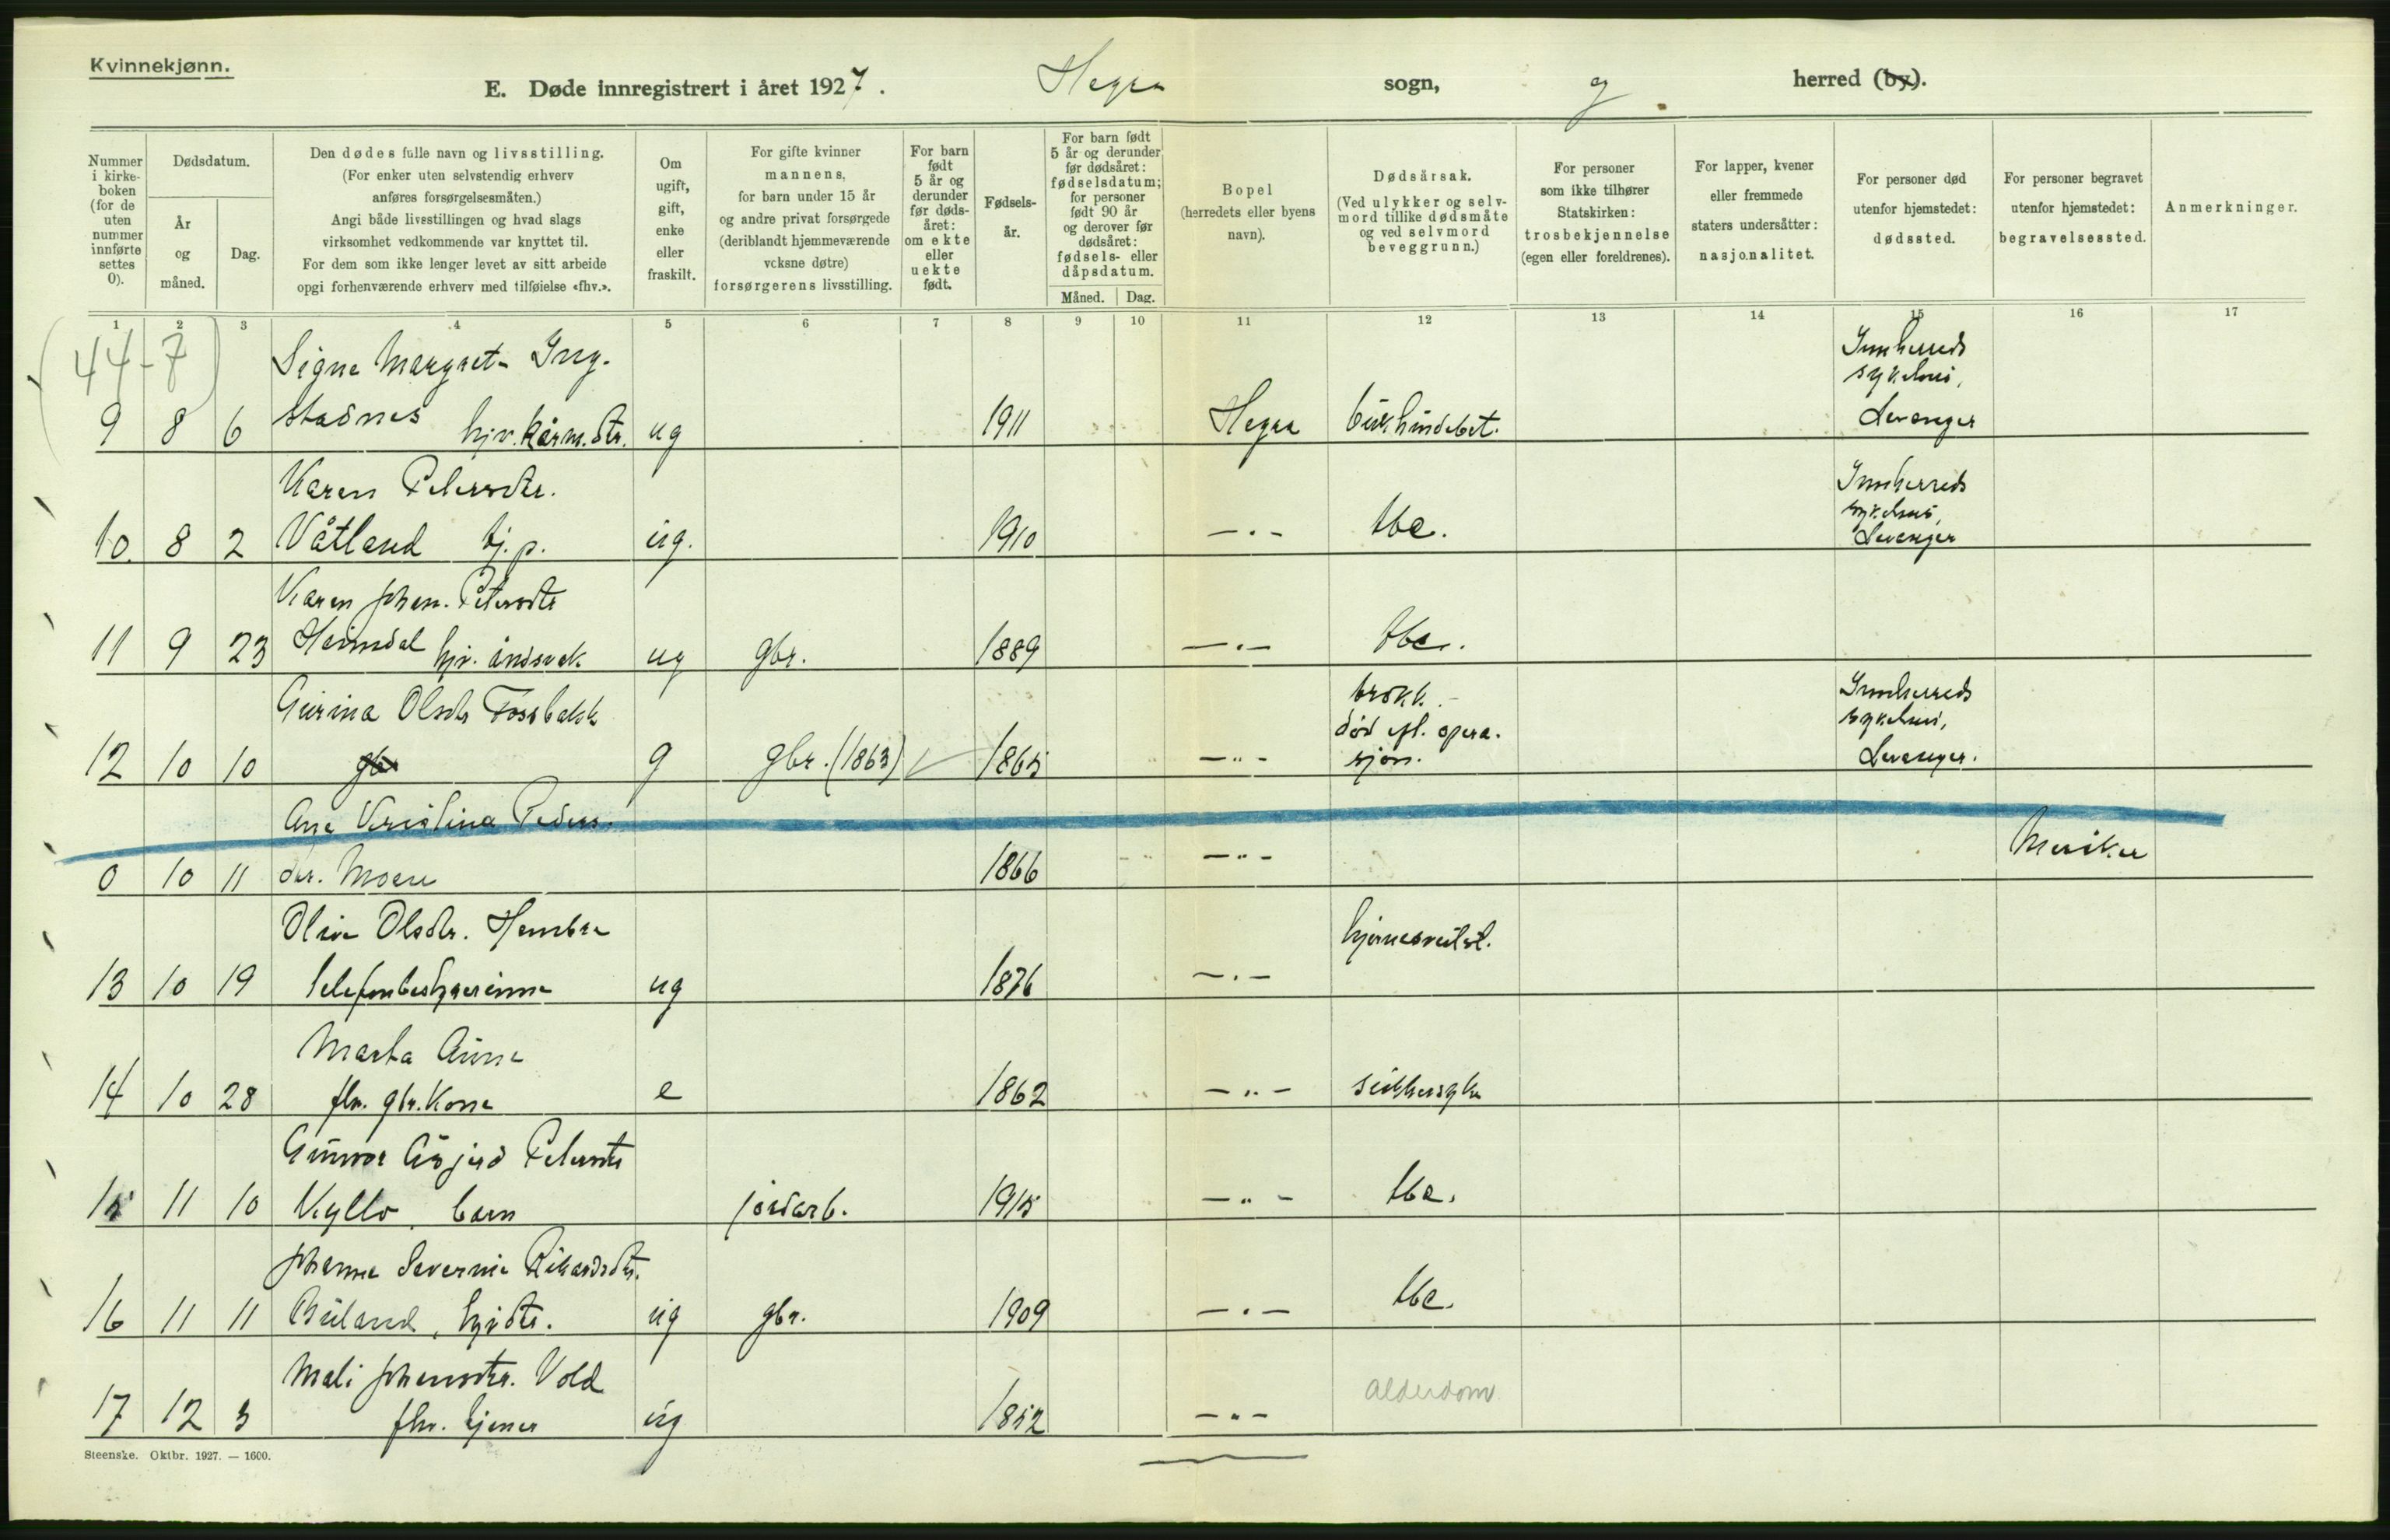 Kvinnekjønn.
E. Døde innregistrert i året 1927. Hegra sogn, og herred (by).
Nummer i kirke-boken (for de uten nummer innførte settes 0).
Dødsdatum.
År og måned.
Dag.
Den dødes fulle navn og livsstilling.
(For enker uten selvstendig erhverv
anføres forsørgelsesmåten.)
Angi både livsstillingen og hvad slags
virksomhet vedkommende var knyttet til.
For dem som ikke lenger levet av sitt arbeide
opgi forhenværende erhverv med tilføielse «fhv.».
Om ugift, gift, enke eller fraskilt.
For gifte kvinner
mannens,
for barn under 15 år
og andre privat forsørgede
(deriblandt hjemmeværende
vcksne døtre)
forsørgerens livsstilling.
For barn født 5 år og derunder før døds-året: om ekte eller uekte født.
Fødsels-år.
For barn født
5 år og derunder
før dødsåret:
fødselsdatum;
for personer
født 90 år
og derover før
dødsåret:
fødsels- eller
dåpsdatum.
Måned. Dag.
Bopel
(herredets eller byens
navn).
Dødsårsak.
(Ved ulykker og selv-
mord tillike dødsmåte
og ved selvmord
beveggrunn.)
For personer
som ikke tilhører
Statskirken:
trosbekjennelse
(egen eller foreldrenes).
For lapper, kvener
eller fremmede
staters undersåtter:
nasjonalitet.
For personer død
utenfor hjemstedet:
dødssted.
For personer begravet
utenfor hjemstedet:
begravelsessted.
Anmerkninger.
1 2 3 4 5 6 7 8 9 10 11 12 13 14 15 16 17
(44-7)
Signe Margret Ing-
Innherreds
sykehus,
9 8 6 stadnes ug 1911 Hegra bukhindebet. Levanger
Karen Petersdtr.
Innherreds
sykehus,
10 8 2 Våtland tj. p. ug. 1910 —.— tbc. Levanger
Karen Johan. Petersdtr
11 9 23 Heimdal hjv. åndsvak ug gbr. 1889 —.— tbc.
Gurina Olsdtr Fossbakk
brokk.-
død eft. opera-
sjon.
Innherreds
sykehus,
12 10 10 gbr g gbr. (1863) 1865 —"— Levanger.
Ane Kristina Peders-
0 10 11 dtr. Moen 1866 —"— Meråker
Olive Olsdtr. Hembre
13 10 19 telefonbestyrerinne ug 1876 —.— hjernesvulst.
Marta Aune
14 10 28 fhv. gbr. kone e 1862 —"— sukkersyke
Gunvor Åsjerd Petersdtr
15 11 10 Kyllo, barn jordarb. 1915 —"— tbc.
Johanna Severine Rikardsdtr.
16 11 11 Buland, hjv dtr. ug gbr. 1909 —.— tbc.
Mali Johansdtr. Vold
17 12 3 fhv. tjener ug 1852 —"— alderdom
Steenske. Oktbr. 1927. — 1600.